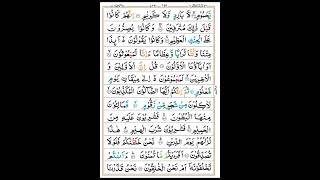 يَّحْمُوْمٍ ۙ لَّا بَارِدٍ وَّلَا كَرِيْمٍ ۟ اِنَّهُمْ كَانُوْا
قَبْلَ ذٰلِكَ مُتْرَفِيْنَ ۟ وَكَانُوْا يُصِرُّوْنَ
عَلَى الْحِنْثِ الْعَظِيْمِ ۟ وَكَانُوْا يَقُوْلُوْنَ ۙ اَئِذَا
مِتْنَا وَكُنَّا تُرَابًا وَّعِظَامًا ءَاِنَّا لَمَبْعُوْثُوْنَ ۟
اَوَ اٰبَآؤُنَا الْاَوَّلُوْنَ ۟ قُلْ اِنَّ الْاَوَّلِيْنَ وَ
الْاٰخِرِيْنَ ۟ لَمَجْمُوْعُوْنَ ۙ اِلٰى مِيْقَاتِ يَوْمٍ
مَّعْلُوْمٍ ۟ ثُمَّ اِنَّكُمْ اَيُّهَا الضَّآلُّوْنَ الْمُكَذِّبُوْنَ ۟
لَاٰكِلُوْنَ مِنْ شَجَرٍ مِّنْ زَقُّوْمٍ ۟ فَمَالِـُٔوْنَ
مِنْهَا الْبُطُوْنَ ۟ فَشٰرِبُوْنَ عَلَيْهِ مِنَ
الْحَمِيْمِ ۟ فَشٰرِبُوْنَ شُرْبَ الْهِيْمِ ۟ هٰذَا
نُزُلُهُمْ يَوْمَ الدِّيْنِ ۟ نَحْنُ خَلَقْنٰكُمْ فَلَوْلَا
تُصَدِّقُوْنَ ۟ اَفَرَءَيْتُمْ مَّا تُمْنُوْنَ ۟ ءَاَنْتُمْ
تَخْلُقُوْنَهٗٓ اَمْ نَحْنُ الْخٰلِقُوْنَ ۟ نَحْنُ قَدَّرْنَا